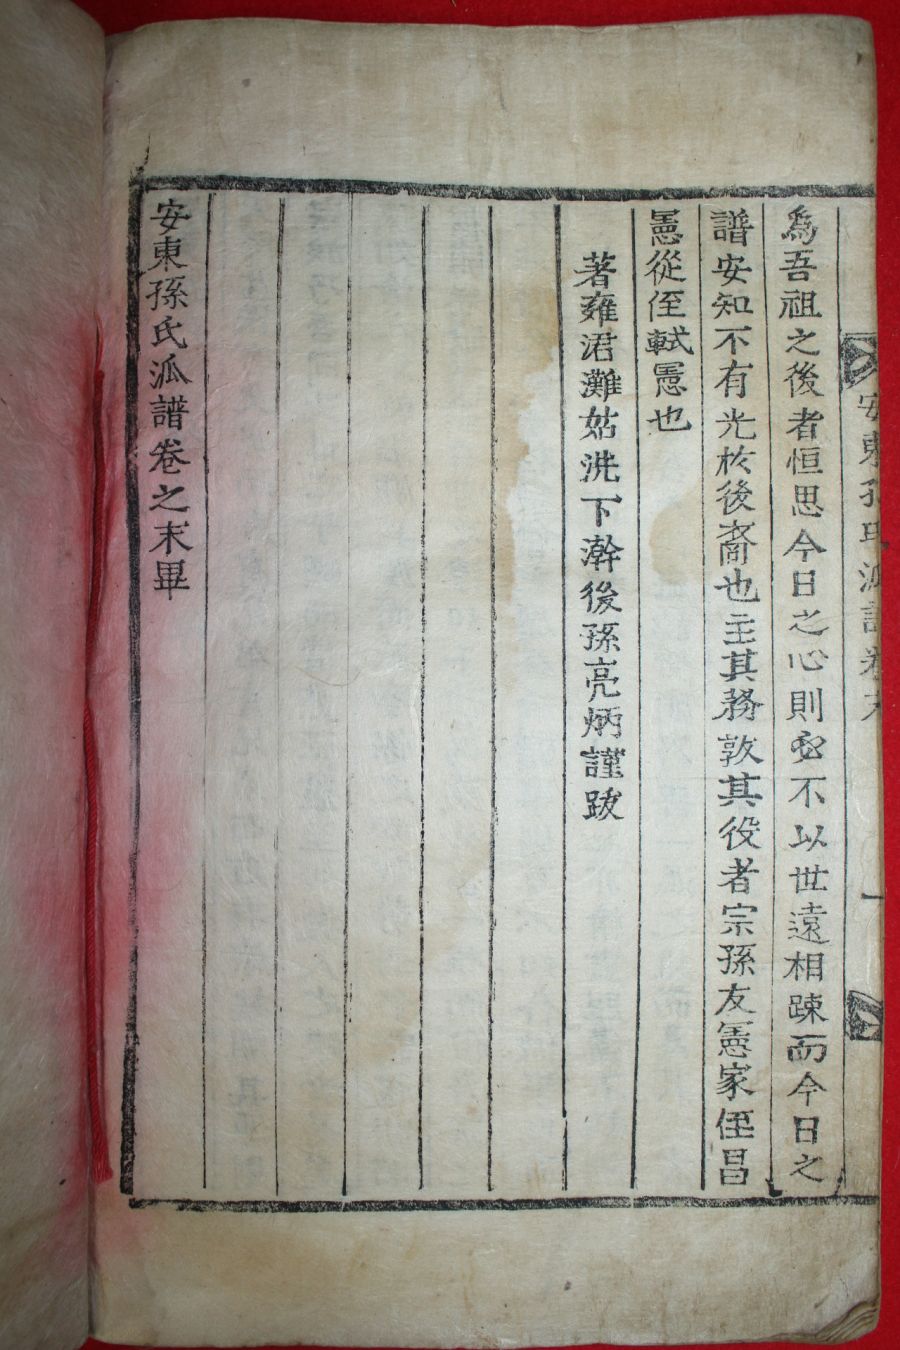 安東孫氏派譜卷六
一
為吾祖之後者恒思今日之心則必不以世遠相踈而今日之
譜安知不有光於後裔也主其務敦其役者宗孫友憲家侄昌
憲從侄軾憲也
著雍涒灘姑洗下澣後孫亮炳謹跋
安東孫氏派譜卷之末畢